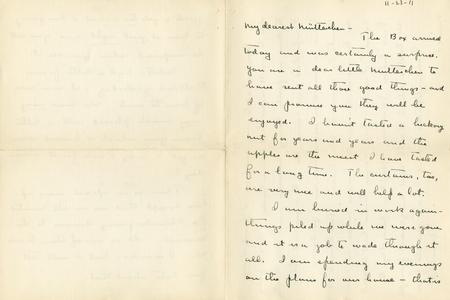 11-23-11
My dearest Mütterchen –
The Box arrived
today and was certainly a surprise.
You are a dear little Mutterchen to
have sent all those good things – and
I can promise you they will be
enjoyed. I haven't tasted a hickory
nut for years and years and the
apples are the nicest I have tasted
for a long time. The curtains, too,
are very nice and will help a lot.
I am buried in work again –
things piled up while we were gone
and it is a job to wade through it
all. I am spending my evenings
on the plans for our house – that is